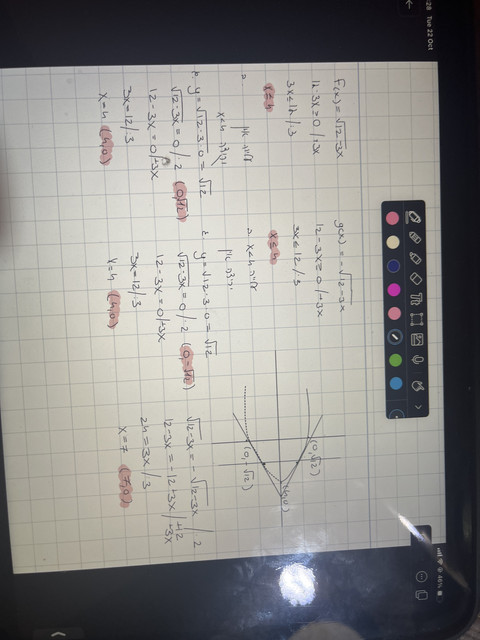 Tue 22 Oct
48%
f(x) = √12-3x
12-3x≥0 /+3x
3x≤12 /:3
x≤4
y = √12-3·0 = √12
√12-3x = 0 /²
(0,√12)
12-3x = 0 /+3x
3x=12/:3
x=4 (4,0)
g(x) = -√12-3x
12-3x≥0 /+3x
3x≤12 /:3
x≤4
y = √12-3·0 = √12
√12-3x = 0 /²
(0,-√12)
12-3x = 0/+3x
3x=12/:3
x=4 (4,0)
(0,√12)
(4,0)
(0,-√12)
√12-3x = -√12-3x /²
12-3x = -12+3x /+12 /+3x
24=3x /3
x=7 (7,0)